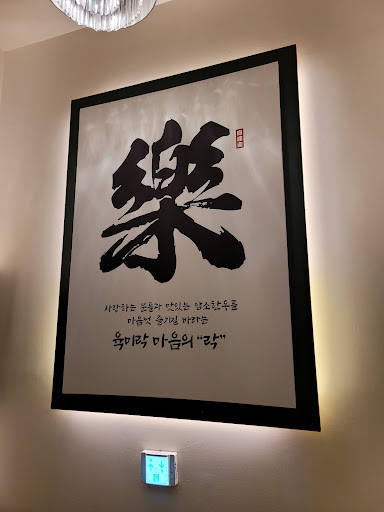 樂
사랑하는 분들과 맛있는 암소한우를
마음껏 즐기길 바라는
육미락 마음의 "락"